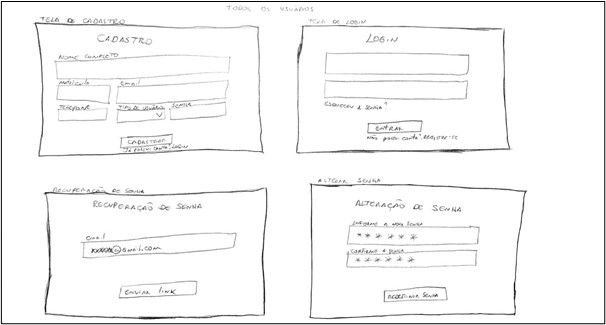 TODOS OS USUÁRIOS
TELA DE CADASTRO
CADASTRO
NOME COMPLETO
MATRÍCULA
email
TELEFONE
TIPO DE USUÁRIO
SENHA
CADASTRAR
Já possui conta? LOGIN
TELA DE LOGIN
LOGIN
ESQUECEU A SENHA?
ENTRAR
Não possui conta? REGISTRE-SE
RECUPERAÇÃO DE SENHA
RECUPERAÇÃO DE SENHA
email
xxxxx@gmail.com
ENVIAR LINK
ALTERAR SENHA
ALTERAÇÃO DE SENHA
INFORME A NOVA SENHA
******
CONFIRME A SENHA
******
REDEFINIR SENHA